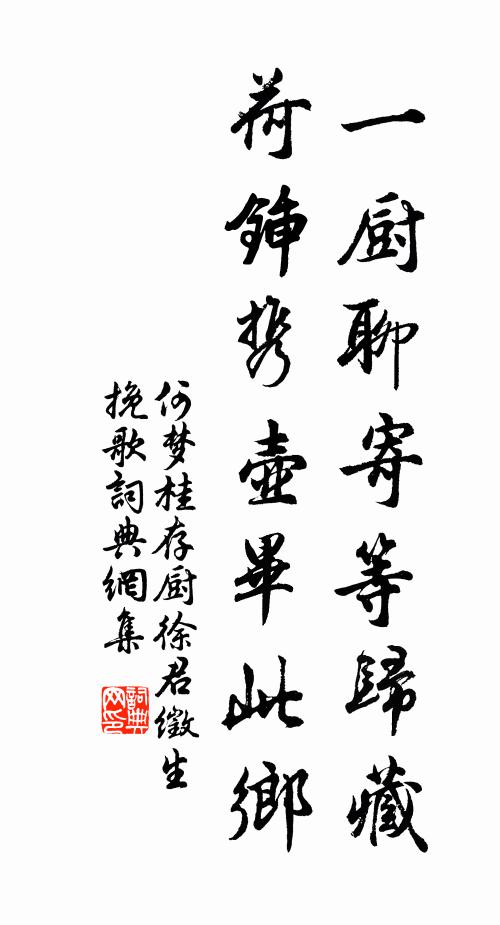 一厨聊寄等歸藏
荷鍤携壺畢此鄉
何梦桂存厨徐君徵生
挽歌詞典網集
詞典网印